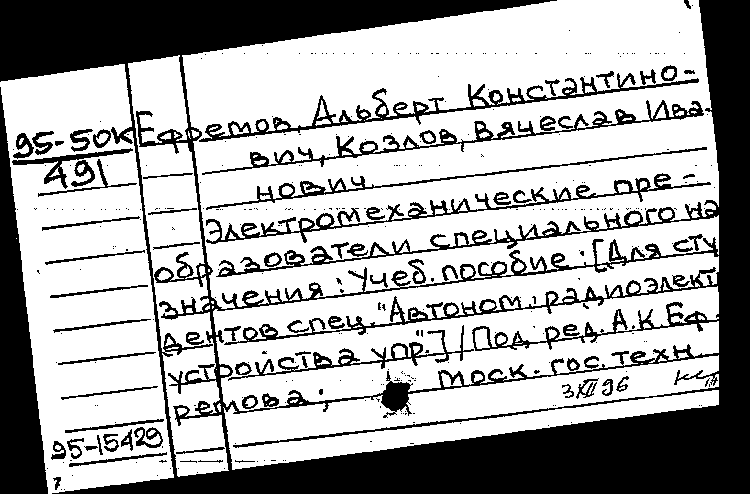 95-50К
491
Ефремов, Альберт Константино-
вич, Козлов, Вячеслав Ива-
нович
Электромеханические пре-
образователи специального на
значения : Учеб. пособие : [Для сту
дентов спец. "Автоном. радиоэлект
устройства упр."] / Под ред. А.К. Еф
ремова ; Моск. гос. техн.
3 XII 96
95-15429
7